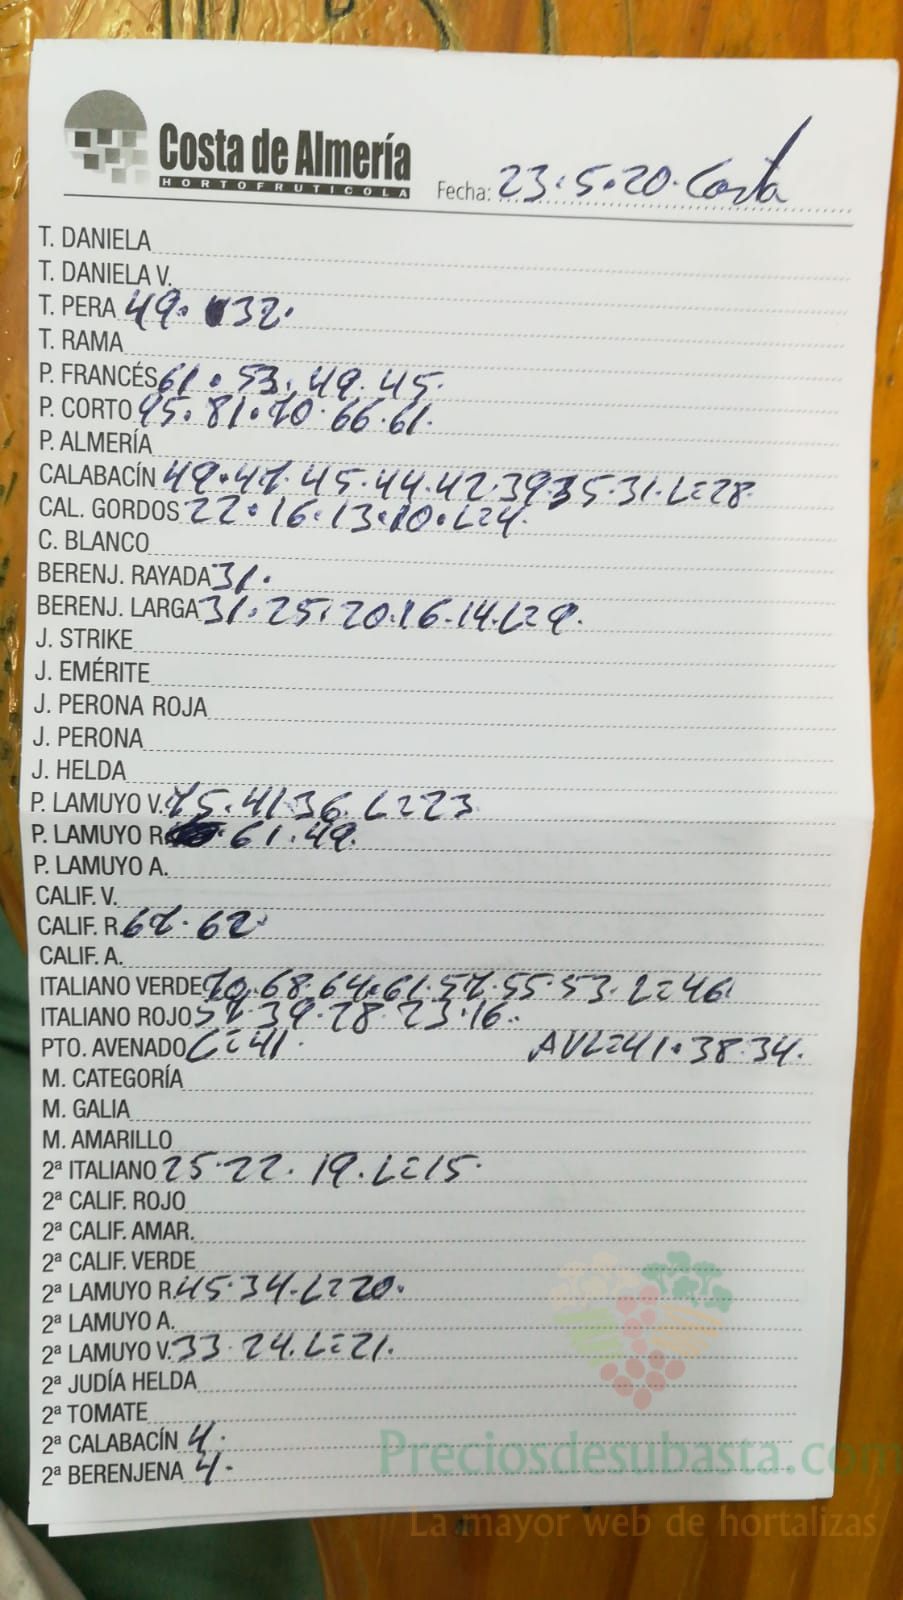 Costa de Almería
HORTOFRUTICOLA
Fecha: 23.5.20. Costa
T. DANIELA
T. DANIELA V.
T. PERA 49. 32.
T. RAMA
P. FRANCÉS 61. 53. 49. 45.
P. CORTO 95. 81. 70. 66. 61.
P. ALMERÍA
CALABACÍN 49. 47. 45. 44. 42. 39. 35. 31. L=28.
CAL. GORDOS 22. 16. 13. 10. L=4.
C. BLANCO
BERENJ. RAYADA 31.
BERENJ. LARGA 31. 25. 20. 16. 14. L=9.
J. STRIKE
J. EMÉRITE
J. PERONA ROJA
J. PERONA
J. HELDA
P. LAMUYO V. 75. 41. 36. L=23.
P. LAMUYO R. 61. 49.
P. LAMUYO A.
CALIF. V.
CALIF. R. 67. 62.
CALIF. A.
ITALIANO VERDE 70. 68. 64. 61. 57. 55. 53. L=46.
ITALIANO ROJO 57. 39. 28. 23. 16.
PTO. AVENADO L=41. AVL=41. 38. 34.
M. CATEGORÍA
M. GALIA
M. AMARILLO
2ª ITALIANO 25. 22. 19. L=15.
2ª CALIF. ROJO
2ª CALIF. AMAR.
2ª CALIF. VERDE
2ª LAMUYO R. 45. 34. L=20.
2ª LAMUYO A.
2ª LAMUYO V. 33. 24. L=21.
2ª JUDÍA HELDA
2ª TOMATE
2ª CALABACÍN 4.
2ª BERENJENA 4.
Preciosdesubasta.com
La mayor web de hortalizas